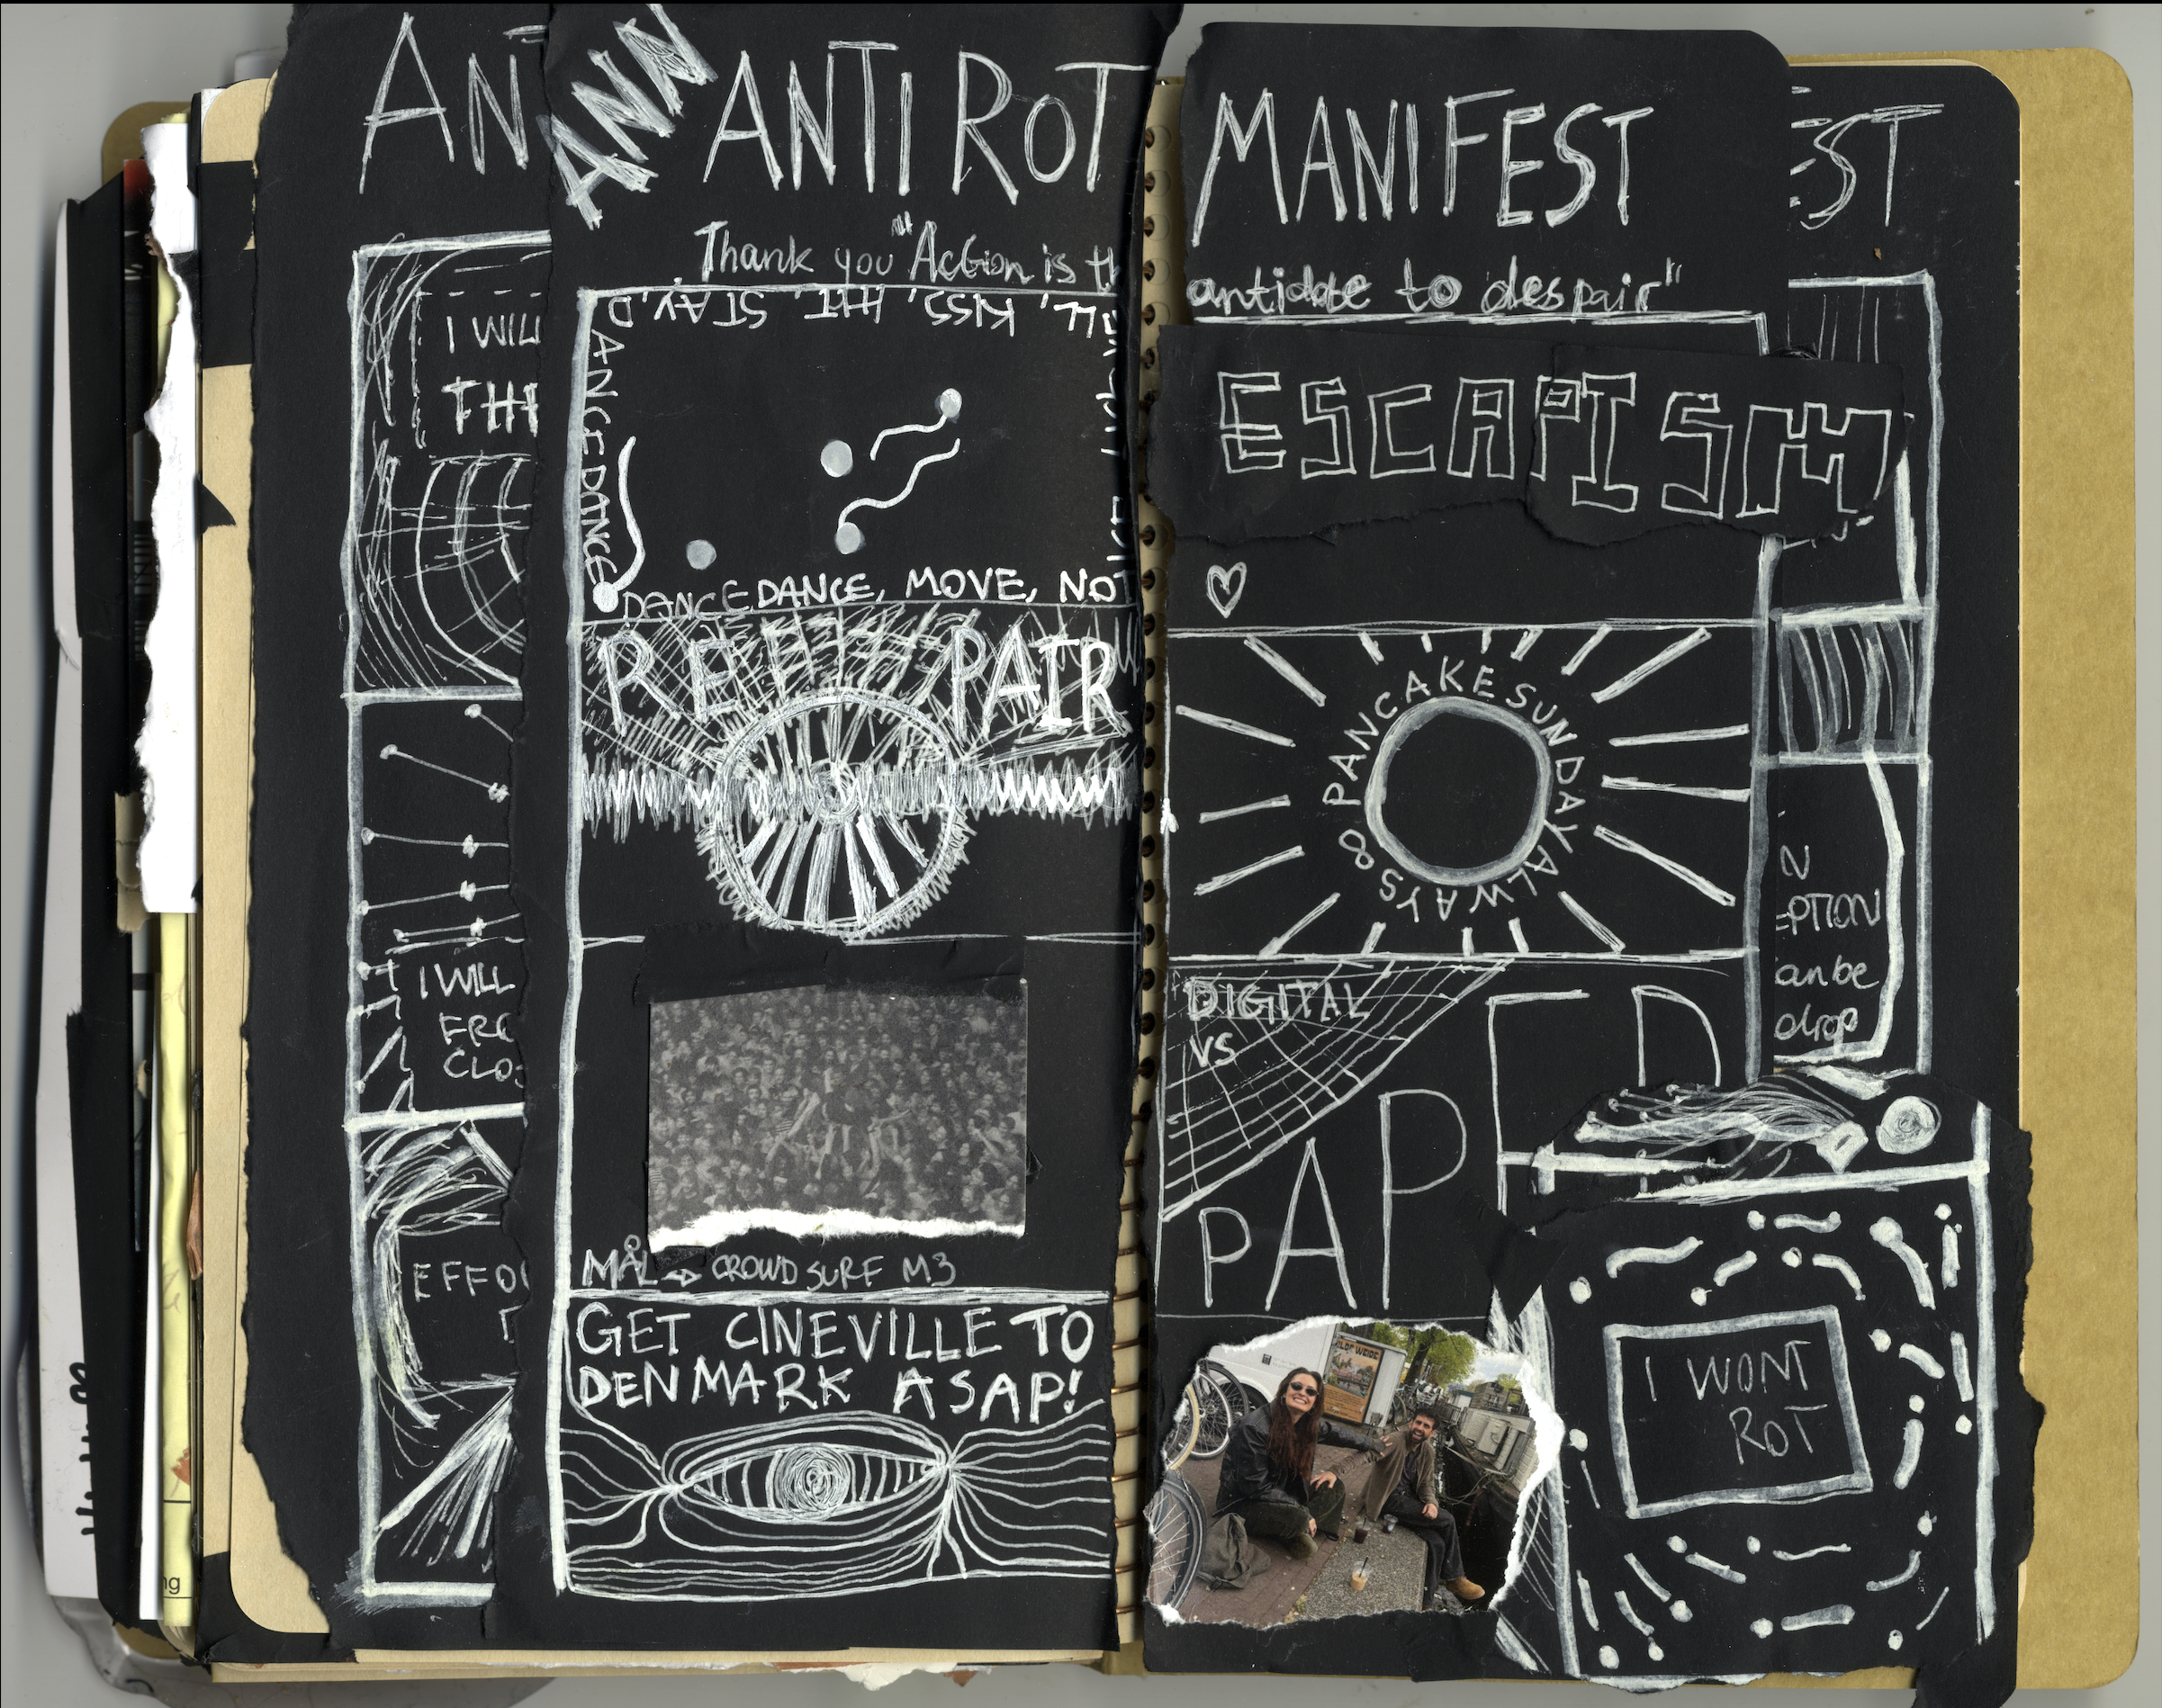 AN
ANN
ANTI ROT
MANIFEST
EST
Thank you "Action is th
antidote to despair"
KISS, HIT, STAY,
DANCE DANCE
DANCE DANCE, MOVE, NOTICE
I WILL
THE
ESCAPISM
RE PAIR
PANCAKE SUNDAY ALWAYS ∞
I WILL
CLOS
N
EPTION
can be
drop
DIGITAL
VS
PAPER
EFFO
MÅL → CROWD SURF M3
GET CINEVILLE TO
DENMARK ASAP!
I WONT
ROT
ng